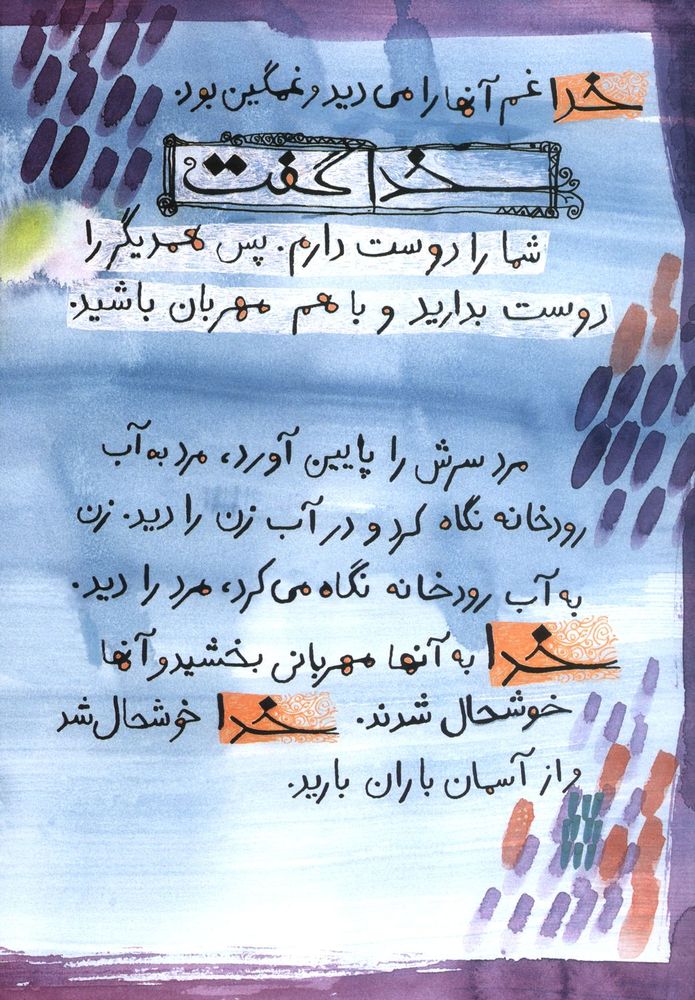 خدا غم آنها را می دید و غمگین بود.
خدا گفت
شما را دوست دارم. پس همدیگر را
دوست بدارید و با هم مهربان باشید.
مرد سرش را پایین آورد، مرد به آب
رودخانه نگاه کرد و در آب زن را دید. زن
به آب رودخانه نگاه می کرد، مرد را دید.
خدا به آنها مهربانی بخشید و آنها
خوشحال شدند. خدا خوشحال شد
و از آسمان باران بارید.